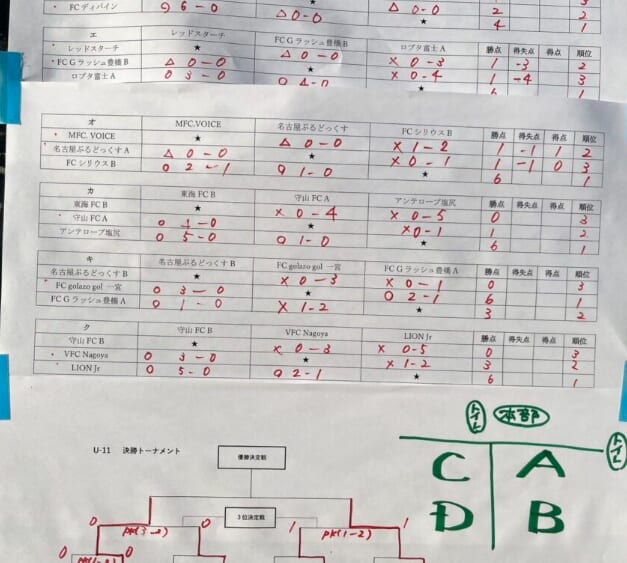 FC ディバイン ○ 6-0 △ 0-0 ★ 4 1
エ レッドスターチ FC G ラッシュ豊橋 B ロプタ富士 A 勝点 得失点 得点 順位
レッドスターチ ★ △ 0-0 × 0-3 1 -3 2
FC G ラッシュ豊橋 B △ 0-0 ★ × 0-4 1 -4 3
ロプタ富士 A ○ 3-0 ○ 4-0 ★ 6 1
オ MFC.VOICE 名古屋ぶるどっくす FC シリウス B 勝点 得失点 得点 順位
MFC. VOICE ★ △ 0-0 × 1-2 1 -1 1 2
名古屋ぶるどっくす A △ 0-0 ★ × 0-1 1 -1 0 3
FC シリウス B ○ 2-1 ○ 1-0 ★ 6 1
カ 東海 FC B 守山 FC A アンテロープ塩尻 勝点 得失点 得点 順位
東海 FC B ★ × 0-4 × 0-5 0 3
守山 FC A ○ 4-0 ★ ×0-1 1 2
アンテロープ塩尻 ○ 5-0 ○ 1-0 ★ 6 1
キ 名古屋ぶるどっくす B FC golazo gol 一宮 FC G ラッシュ豊橋 A 勝点 得失点 得点 順位
名古屋ぶるどっくす B ★ × 0-3 × 0-1 0 3
FC golazo gol 一宮 ○ 3-0 ★ ○ 2-1 6 1
FC G ラッシュ豊橋 A ○ 1-0 × 1-2 ★ 3 2
ク 守山 FC B VFC Nagoya LION Jr 勝点 得失点 得点 順位
守山 FC B ★ × 0-3 × 0-5 0 3
VFC Nagoya ○ 3-0 ★ × 1-2 3 2
LION Jr ○ 5-0 ○ 2-1 ★ 6 1
トイレ 本部 トイレ
C A
D B
U-11 決勝トーナメント
優勝決定戦
3位決定戦
0 PK(3-2) 0 1 PK(1-2) 1
0 0